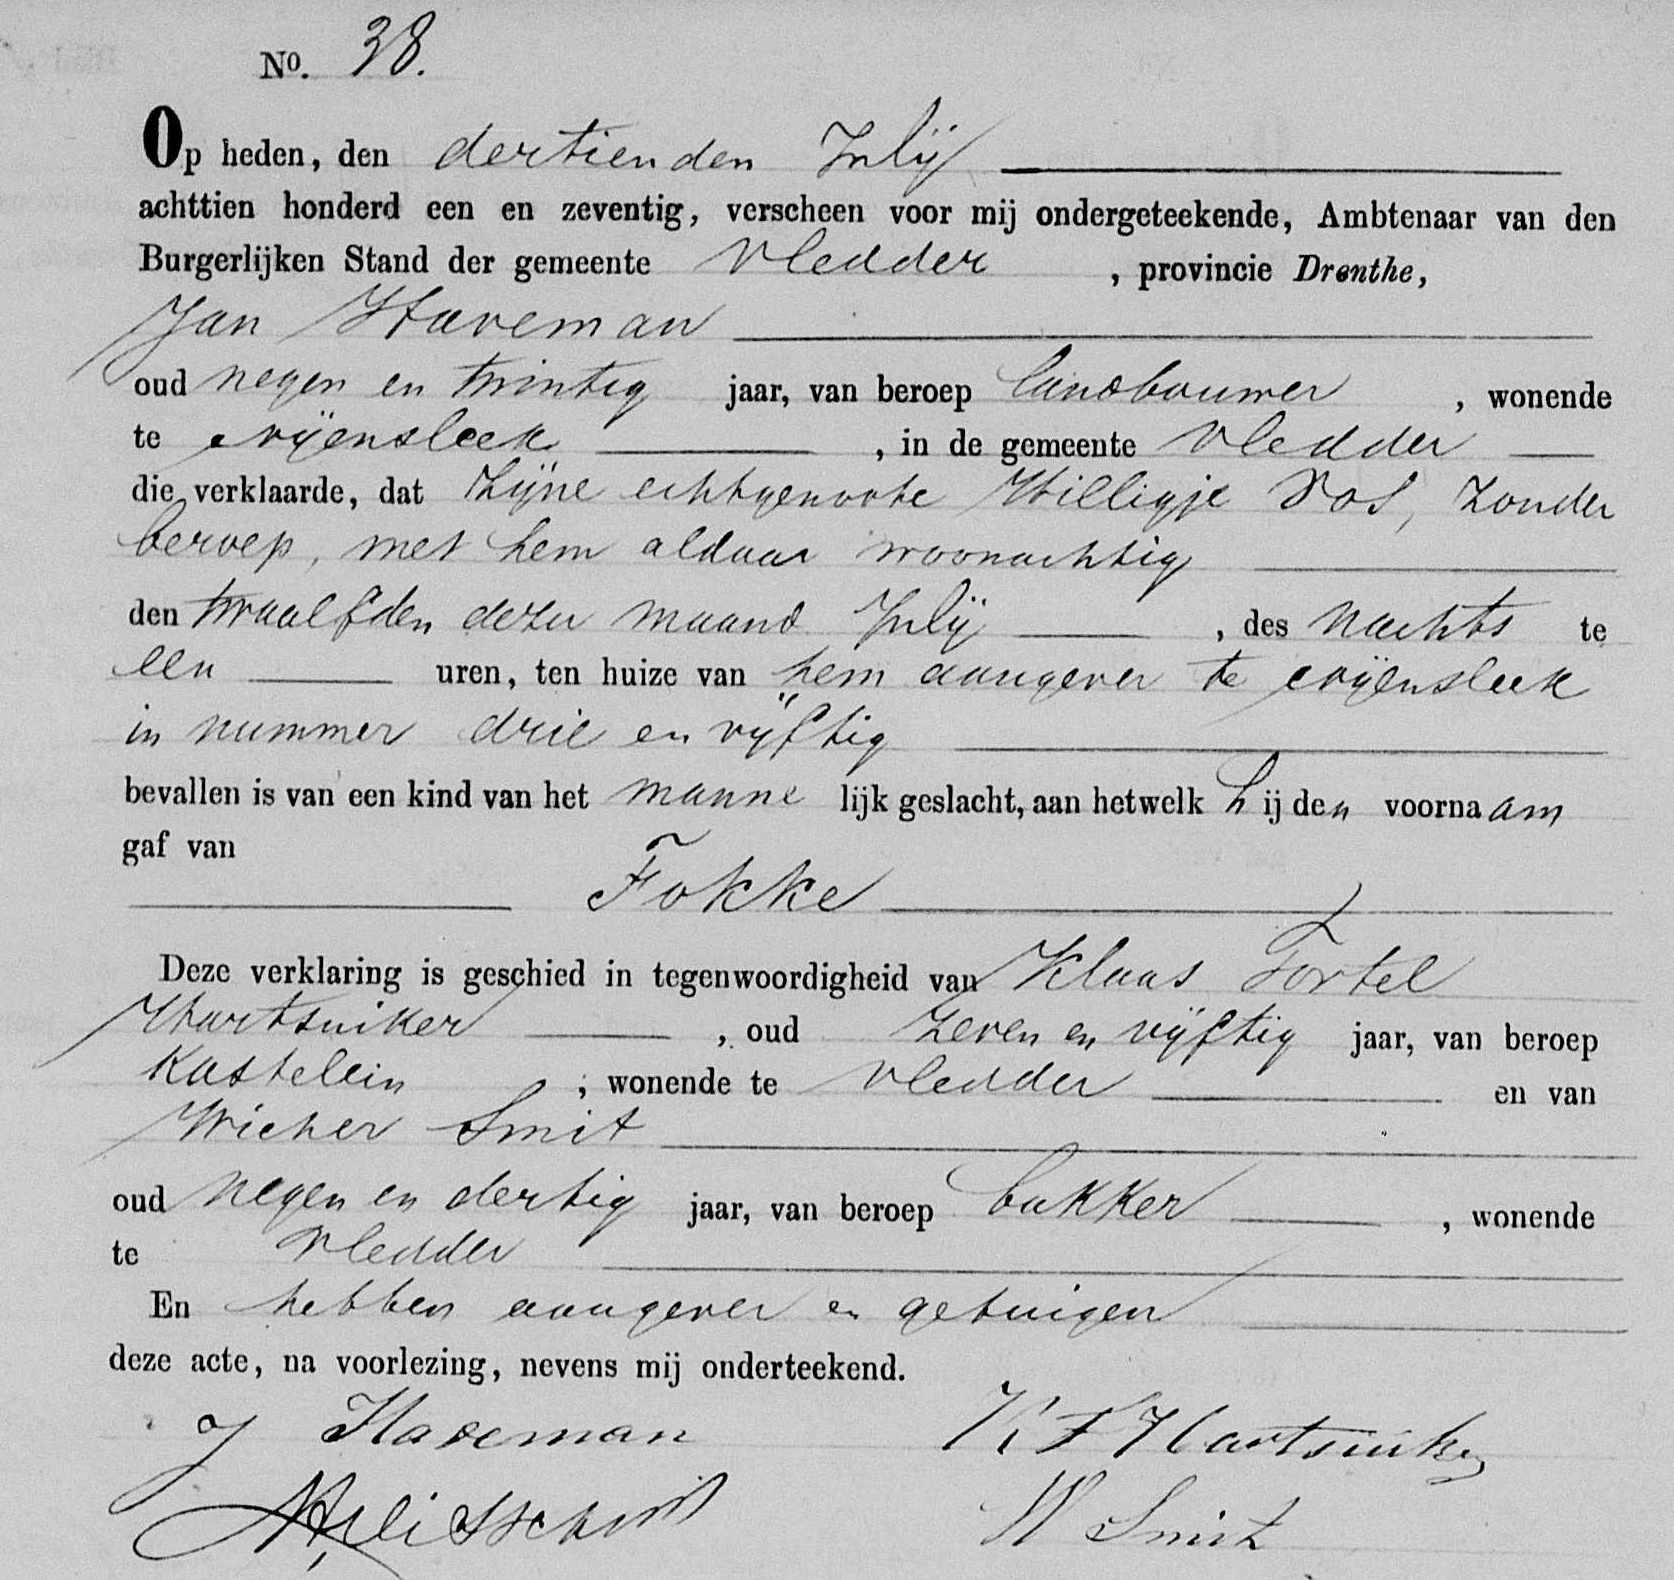 No. 38.
Op heden, den dertienden Julÿ
achttien honderd een en zeventig, verscheen voor mij ondergeteekende, Ambtenaar van den
Burgerlijken Stand der gemeente Vledder, provincie Drenthe,
Jan Haveman
oud negen en twintig jaar, van beroep landbouwer, wonende
te , in de gemeente Vledder
die verklaarde, dat zÿne echtgenoote Hilligje Vos, zonder
beroep, met hem aldaar woonachtig
den twaalfden dezer maand Julÿ, des nachts te
een uren, ten huize van hem aangever te
in nummer drie en vÿftig
bevallen is van een kind van het mannelijk geslacht, aan hetwelk hij den voornaam
gaf van
Fokke
Deze verklaring is geschied in tegenwoordigheid van Klaas Fortel
Hartsuiker, oud zeven en vÿftig jaar, van beroep
Kastelein, wonende te Vledder en van
Wicher Smit
oud negen en dertig jaar, van beroep bakker, wonende
te Vledder
En hebben aangever en getuigen
deze acte, na voorlezing, nevens mij onderteekend.
J Haveman K F Hartsuiker
W Smit